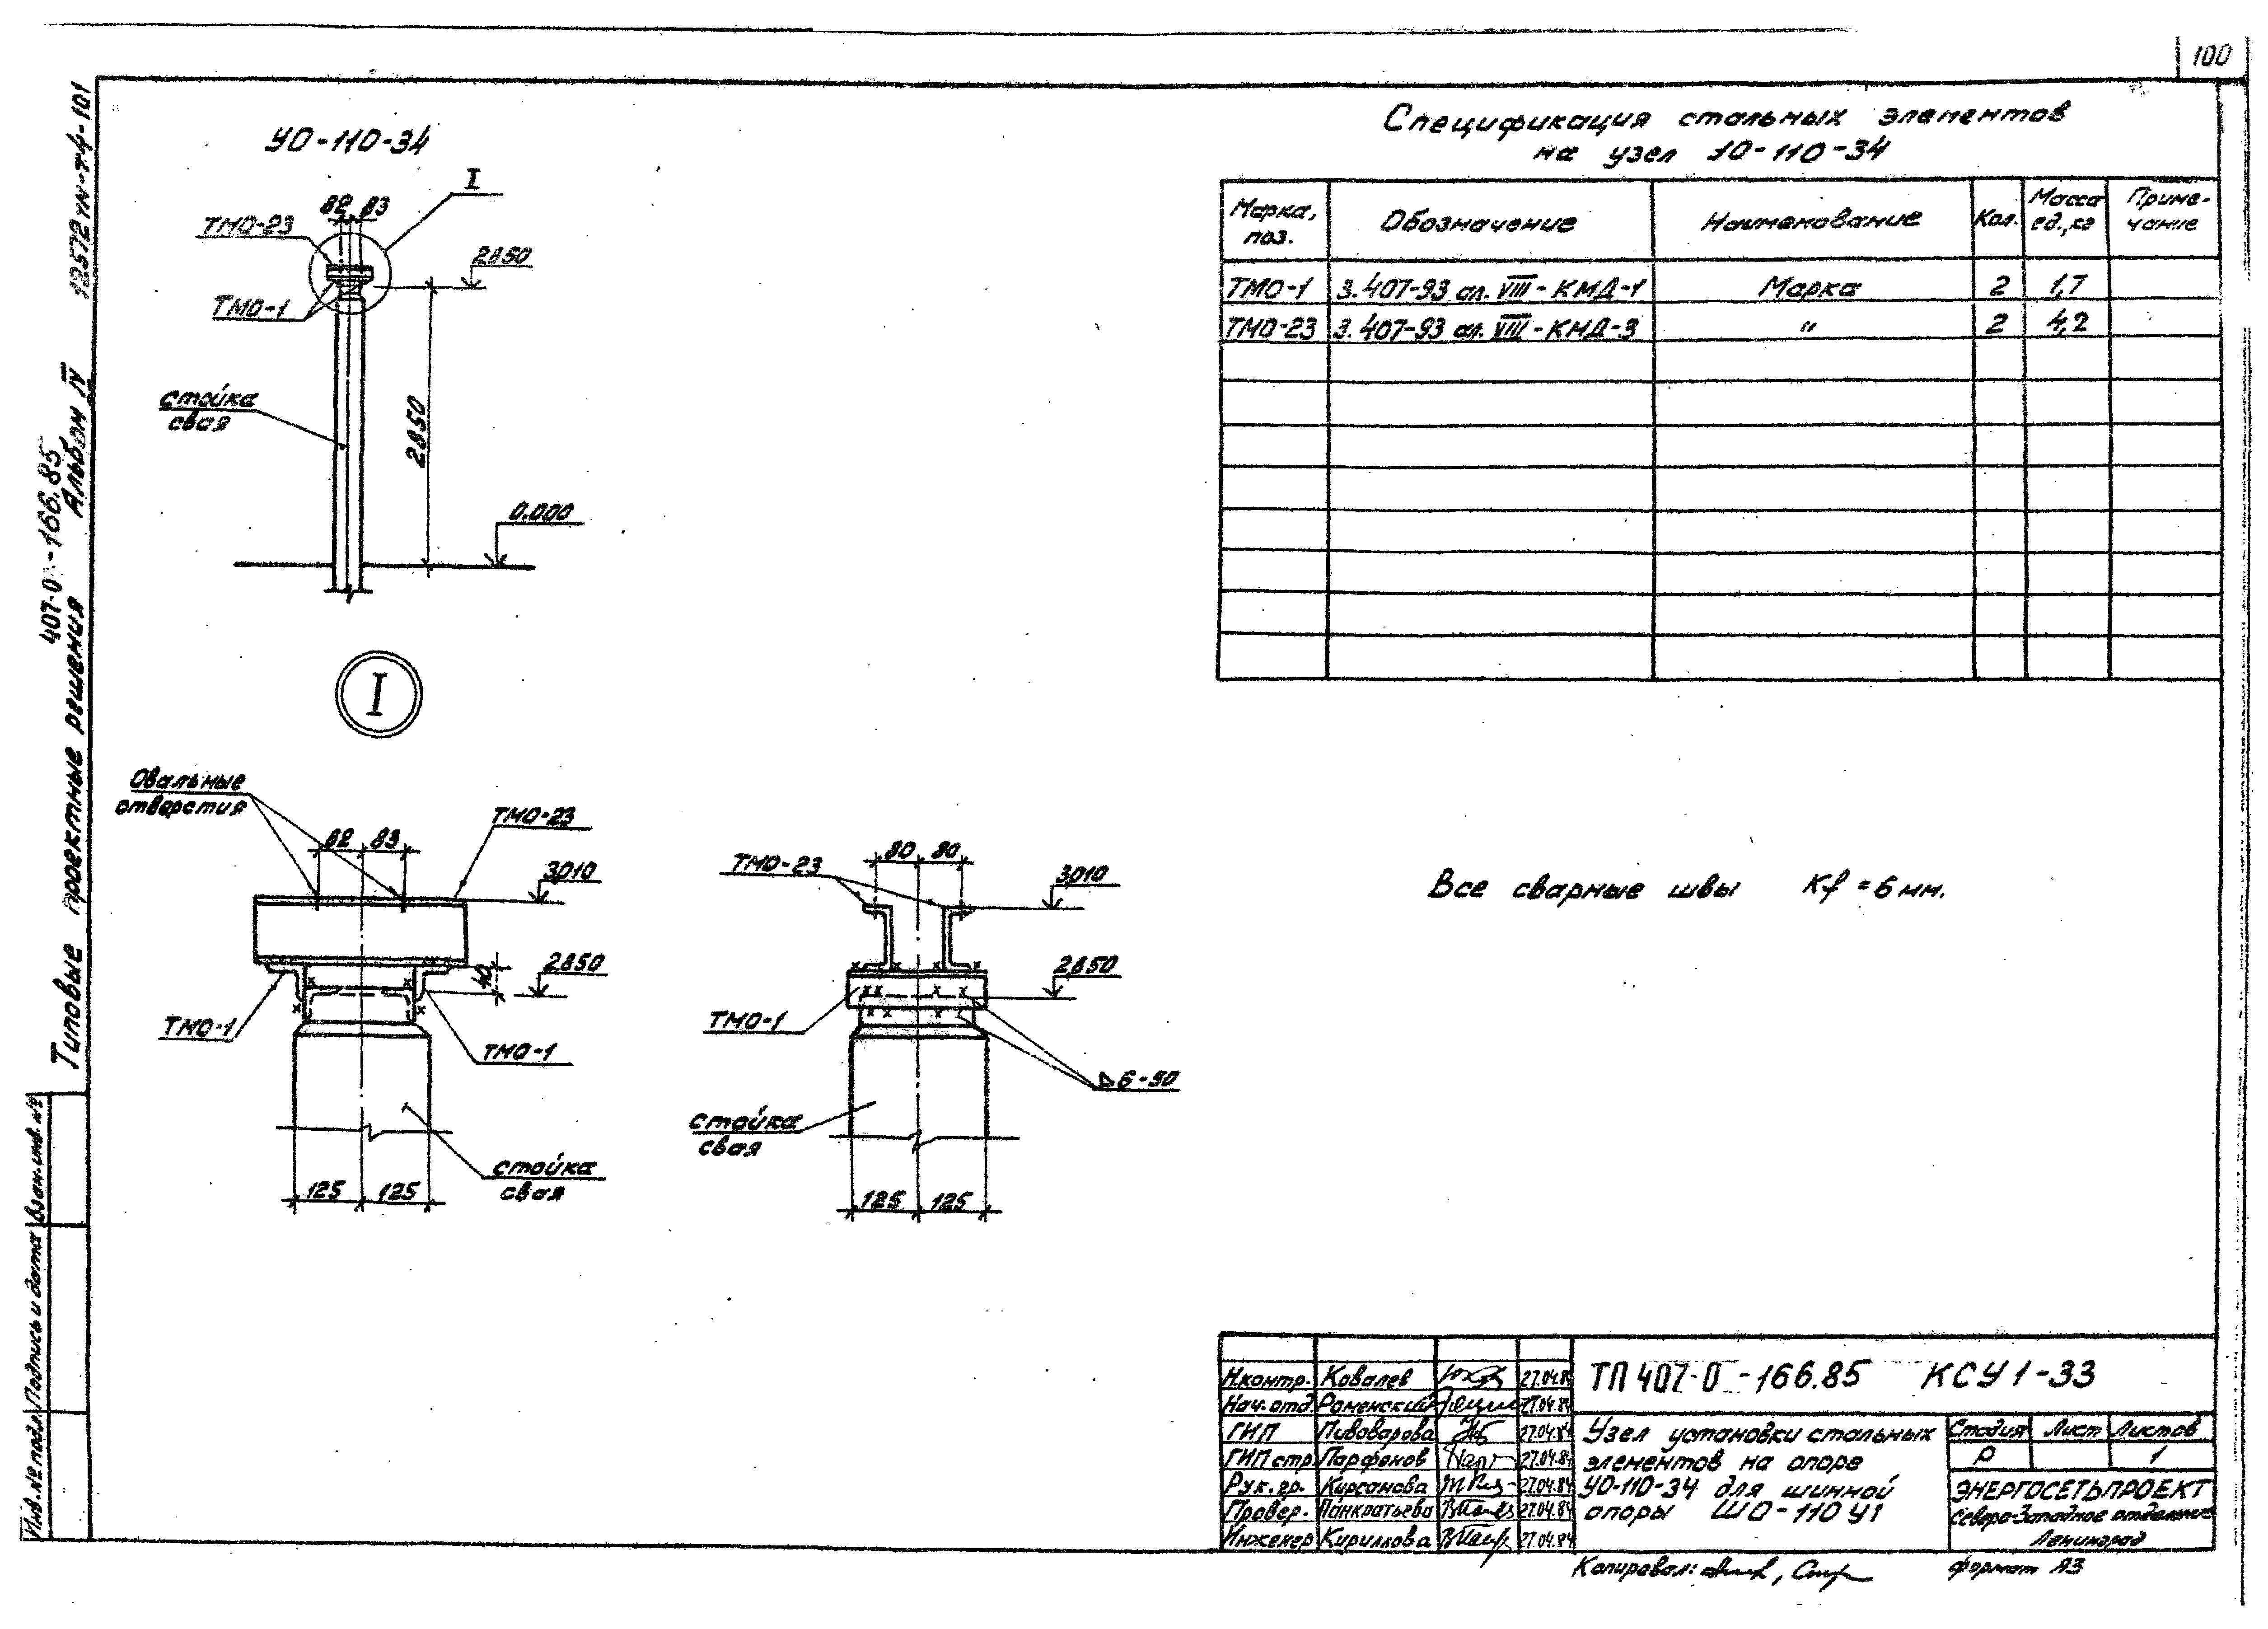 100
12572тм-т4-101
407-0-166.85
Типовые проектные решения Альбом IV
УО-110-34
I
82 83
ТМО-23
2850
ТМО-1
стойка
свая
2850
0.000
I
Овальные
отверстия
82 83
ТМО-23
3010
2850
40
ТМО-1
ТМО-1
стойка
свая
125 125
80 80
ТМО-23
3010
2850
ТМО-1
6-50
стойка
свая
125 125
Спецификация стальных элементов
на узел УО-110-34
Марка, поз. Обозначение Наименование Кол. Масса ед., кг Приме-чание
ТМО-1 3.407-93 ал. VIII-КМД-1 Марка 2 1,7
ТМО-23 3.407-93 ал. VIII-КМД-3 " 2 4,2
Все сварные швы Kf = 6 мм.
ТП 407-0-166.85 КСУ1-33
Н.контр. Ковалев 27.04.84
Нач.отд. Роменский 27.04.84
ГИП Пивоварова 27.04.84
ГИП стр. Парфенов 27.04.84
Рук.гр. Кирсанова 27.04.84
Провер. Панкратьева 27.04.84
Инженер Кириллова 27.04.84
Узел установки стальных
элементов на опоре
УО-110-34 для шинной
опоры ШО-110 У1
Стадия Лист Листов
Р 1
ЭНЕРГОСЕТЬПРОЕКТ
Северо-Западное отделение
Ленинград
Копировал:
формат А3
Инв.№ подл. Подпись и дата Взам.инв.№